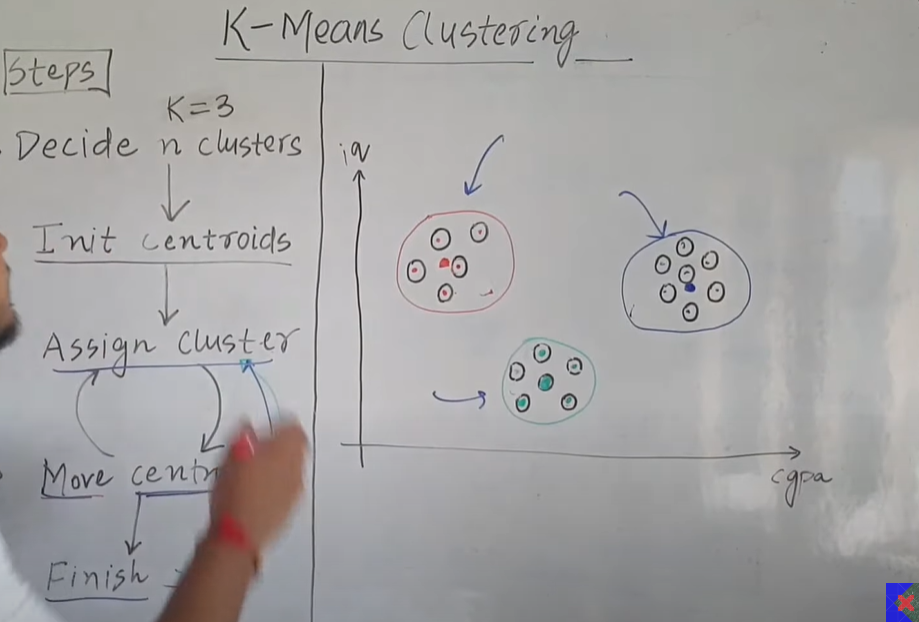 K-Means Clustering
Steps
K=3
Decide n clusters
Init centroids
Assign cluster
Move
Finish
iq
cgpa